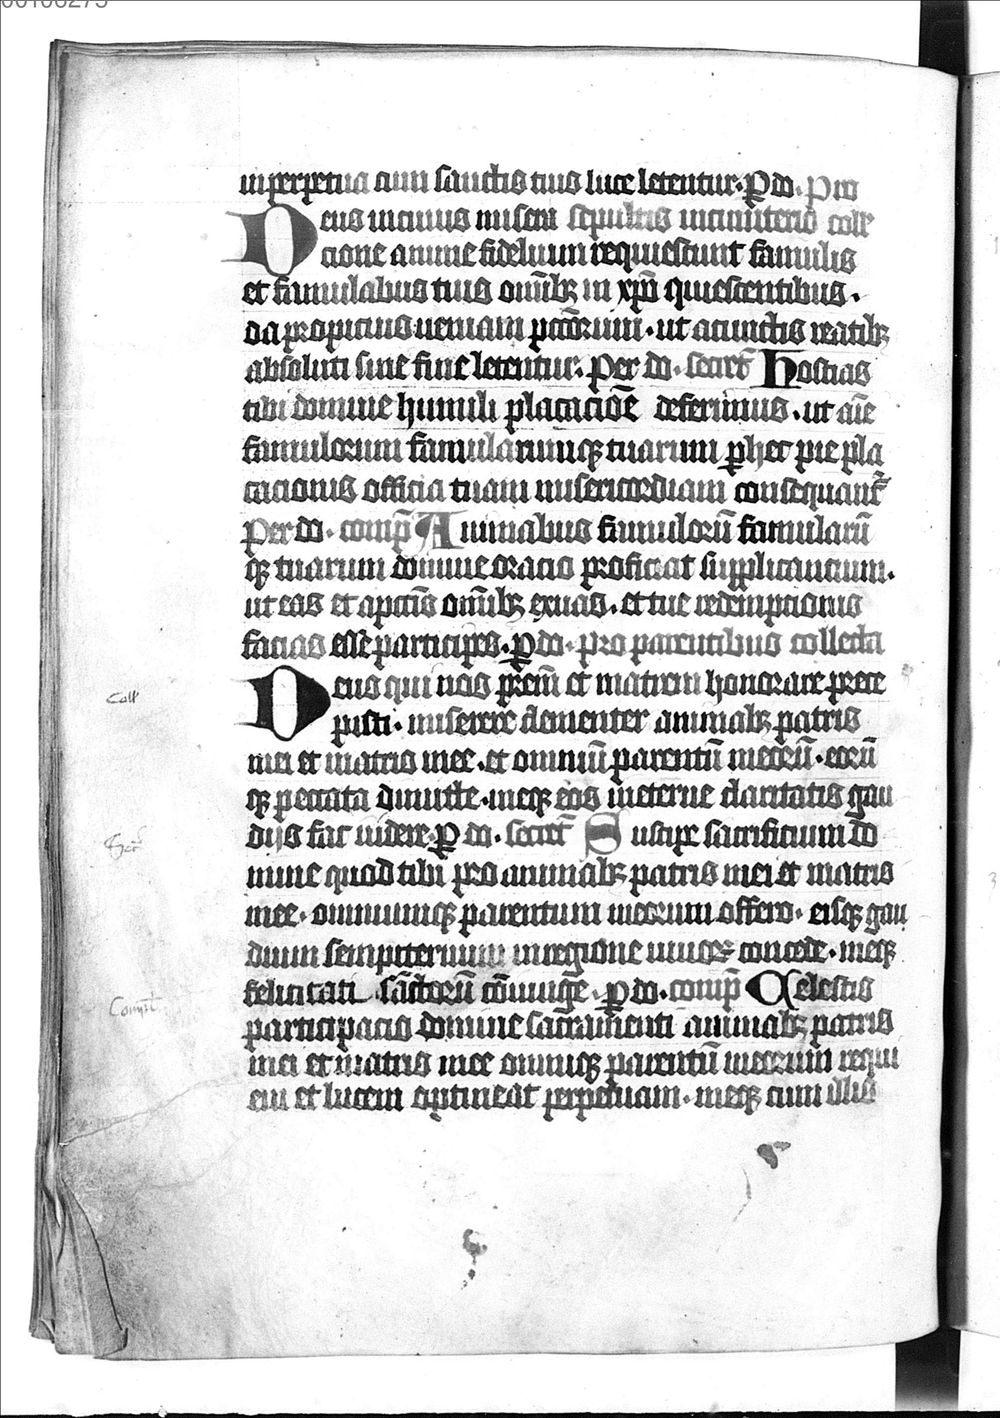 00100275
inperpetua cum sanctis tuis luce letentur. P̱ do. Pro
Deus incuius misera sepultis incimiterio coll'
cione anime fidelium requiescunt famulis
et famulabus tuis om̄ibꝫ in xp̄o quiescentibus.
da propicius ueniam pctōrum. ut acunctis reatibꝫ
absoluti sine fine letentur. Per do. secret̄ Hostias
tibi domine humili placacio̅e deferimus. ut aīe
famulorum famularumqꝫ tuarum ꝑ hec pie pla
cacionis officia tuam misericordiam consequant̄
Per do. comp̄ Animabus famulorū famularū
qꝫ tuarum domine oracio proficiat supplicancium.
ut eas et apcc̄is om̄ibꝫ exuas. et tue redempcionis
facias esse participes. P̱ do. pro parentibus collecta
Deus qui nos pr̄em et matrem honorare prece
Coll'
pisti. miserere clementer animabꝫ patris
mei et matris mee. et omniū parentū meorū. eorū
qꝫ peccata dimitte. meqꝫ eos ineterne claritatis gau
dijs fac uidere. P̱ do. secret̄ Suscipe sacrificium do
Secr̄
mine quod tibi pro animabꝫ patris mei et matris
mee. omniumqꝫ parentum meorum offero. eisqꝫ gau
dium sempiternum inregione uiuoꝝ concede. meqꝫ
felicitati sāctorū cōiunge. P̱ do. comp̄ Celestis
Compl̄
participacio domine sacramenti animabꝫ patris
mei et matris mee omniqꝫ parentū meorum requi
em et lucem optineat perpetuam. meqꝫ cum illis